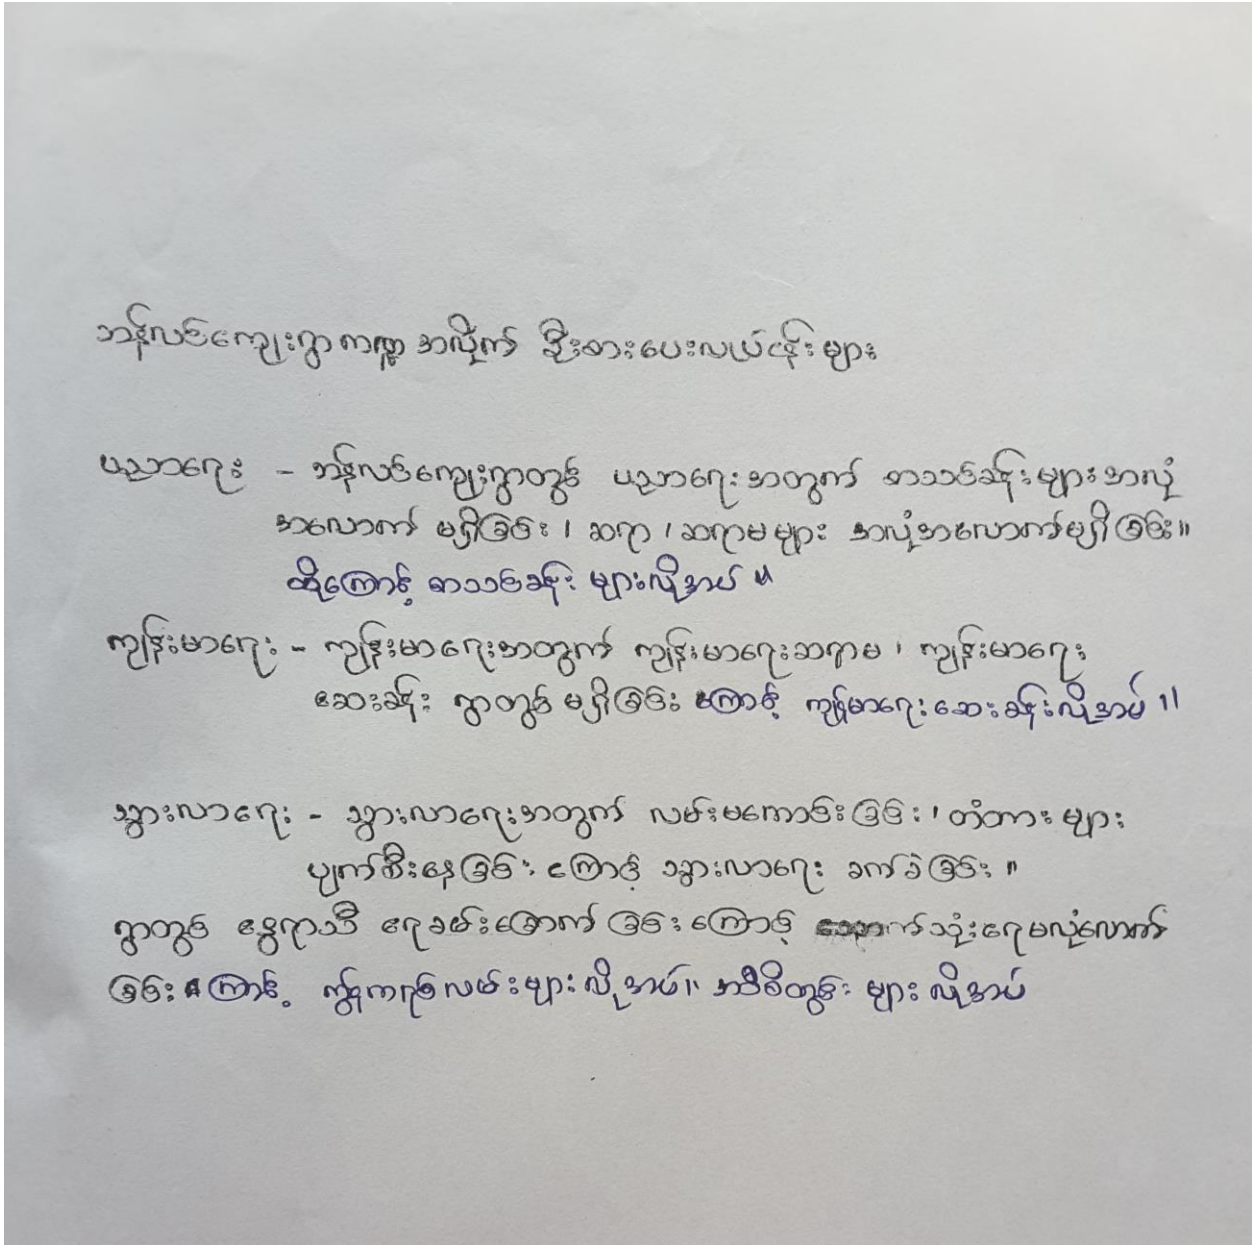 ဘန်လင်ကျေးရွာ ကဏ္ဍ အလိုက် ဦးစားပေးလုပ်ငန်းများ
ပညာရေး - ဘန်လင်ကျေးရွာတွင် ပညာရေးအတွက် စာသင်ခန်းများအလုံ
အလောက် မရှိခြင်း၊ ဆရာ၊ ဆရာမများ အလုံအလောက်မရှိခြင်း။
ထို့ကြောင့် စာသင်ခန်း များလိုအပ်။
ကျန်းမာရေး - ကျန်းမာရေးအတွက် ကျန်းမာရေးဆရာမ၊ ကျန်းမာရေး
ဆေးခန်း ရွာတွင် မရှိခြင်း ကြောင့် ကျန်မာရေးဆေးခန်းလိုအပ်။
သွားလာရေး - သွားလာရေးအတွက် လမ်းမကောင်းခြင်း၊ တံတားများ
ပျက်စီးနေခြင်း ကြောင့် သွားလာရေး ခက်ခဲခြင်း။
ရွာတွင် နွေရာသီ ရေခမ်းခြောက်ခြင်းကြောင့် သောက်သုံးရေမလုံလောက်
ခြင်းကြောင့် ကွန်ကရစ်လမ်းများလိုအပ်။ အဝီစိတွင်း များလိုအပ်